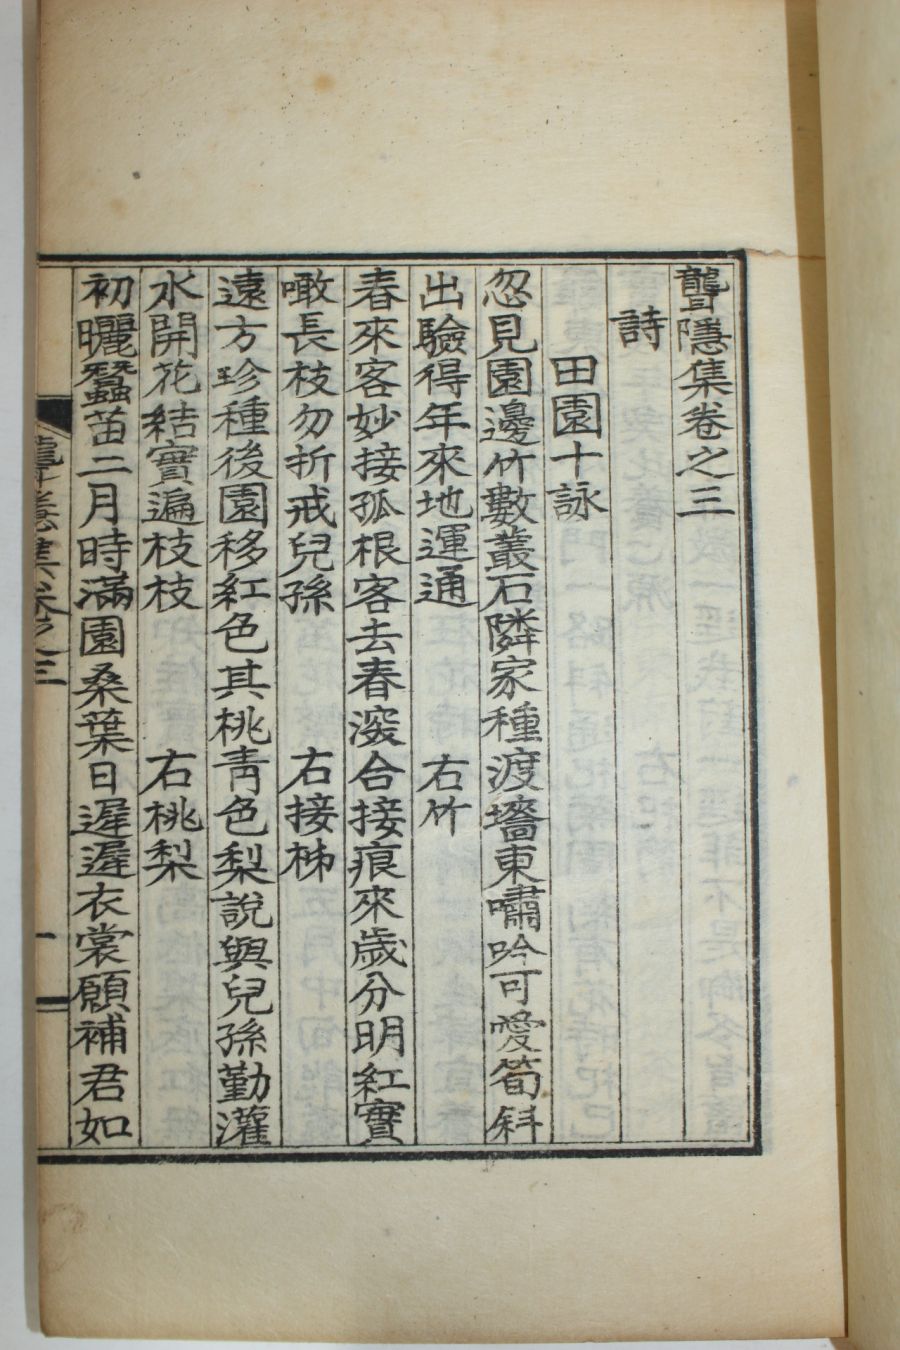 聾隱集卷之三
詩
田園十詠
忽見園邊竹數叢石隣家種渡墻東嘯吟可愛筍斜
出驗得年來地運通 右竹
春來客妙接孤根客去春深合接痕來歲分明紅實
噉長枝勿折戒兒孫 右接柹
遠方珍種後園移紅色其桃靑色梨說與兒孫勤灌
水開花結實遍枝枝 右桃梨
初曬蠶苖二月時滿園桑葉日遲遲衣裳願補君如
聾隱集卷之三 一